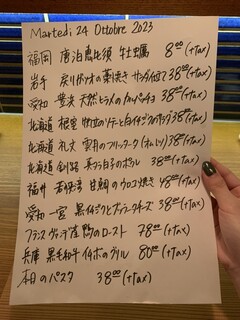 Martedì 24 Ottobre 2023
福岡 唐泊恵比須 牡蠣 8⁰⁰(+tax)
岩手 戻りガツオの藁焼き 38⁰⁰(+Tax)
愛知 豊浜 天然ヒラメのカルパッチョ 38⁰⁰(+Tax)
北海道 根室 38⁰⁰(+Tax)
北海道 礼文 雲丹のフリッタータ(オムレツ) 38⁰⁰(+Tax)
北海道 釧路 真ダラ白子の 38⁰⁰(+Tax)
福井 若狭湾 甘鯛のウロコ焼き 48⁰⁰(+Tax)
愛知 一宮 黒イチジクとブッラータチーズ 38⁰⁰(+Tax)
フランス ヴァンデ産 鴨のロースト 78⁰⁰(+Tax)
兵庫 黒毛和牛 イチボのグリル 80⁰⁰(+Tax)
本日のパスタ 38⁰⁰(+Tax)